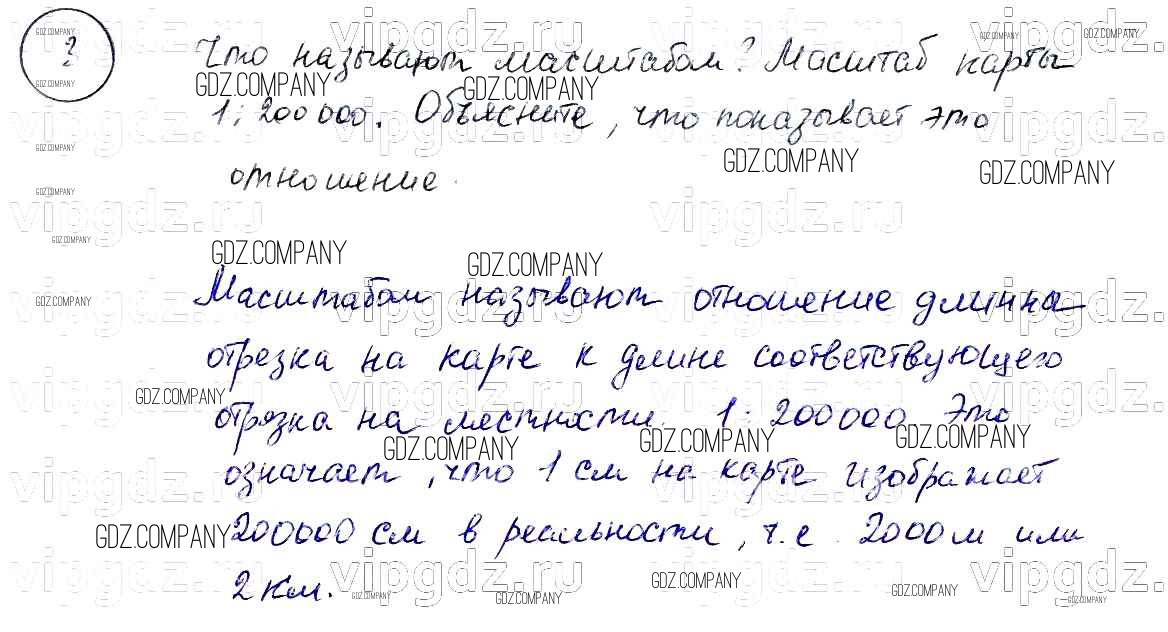 ?
Что называют масштабом? Масштаб карты
1 : 200 000. Объясните, что показывает это
отношение.
Масштабом называют отношение длинна
отрезка на карте к длине соответствующего
отрезка на местности. 1 : 200000 Это
означает, что 1 см на карте изображает
200000 см в реальности, т.е. 2000 м или
2 км.
vipgdz.ru
GDZ.COMPANY